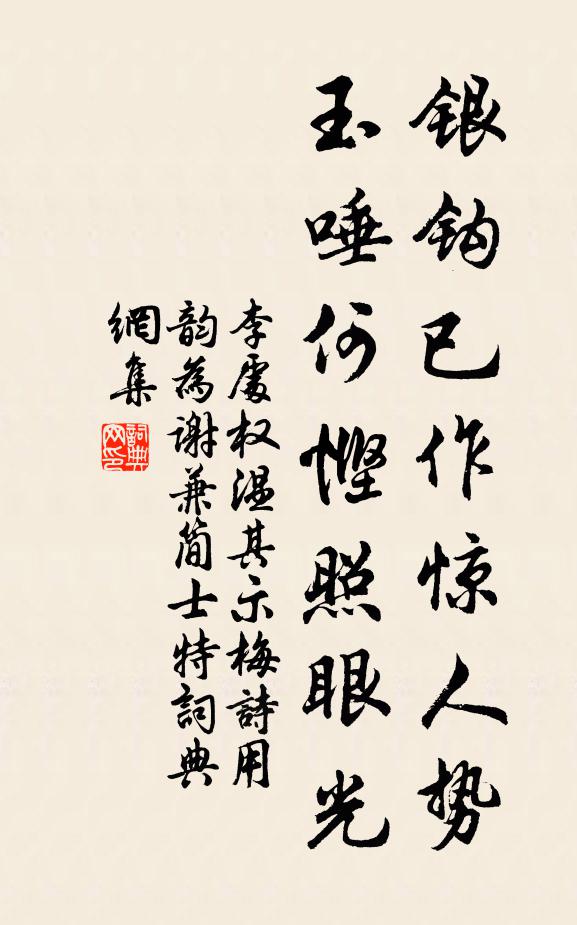 银钩已作惊人势
玉唾何悭照眼光
李處权温其示梅詩用
韵為谢兼简士特詞典
網集
詞典
网印